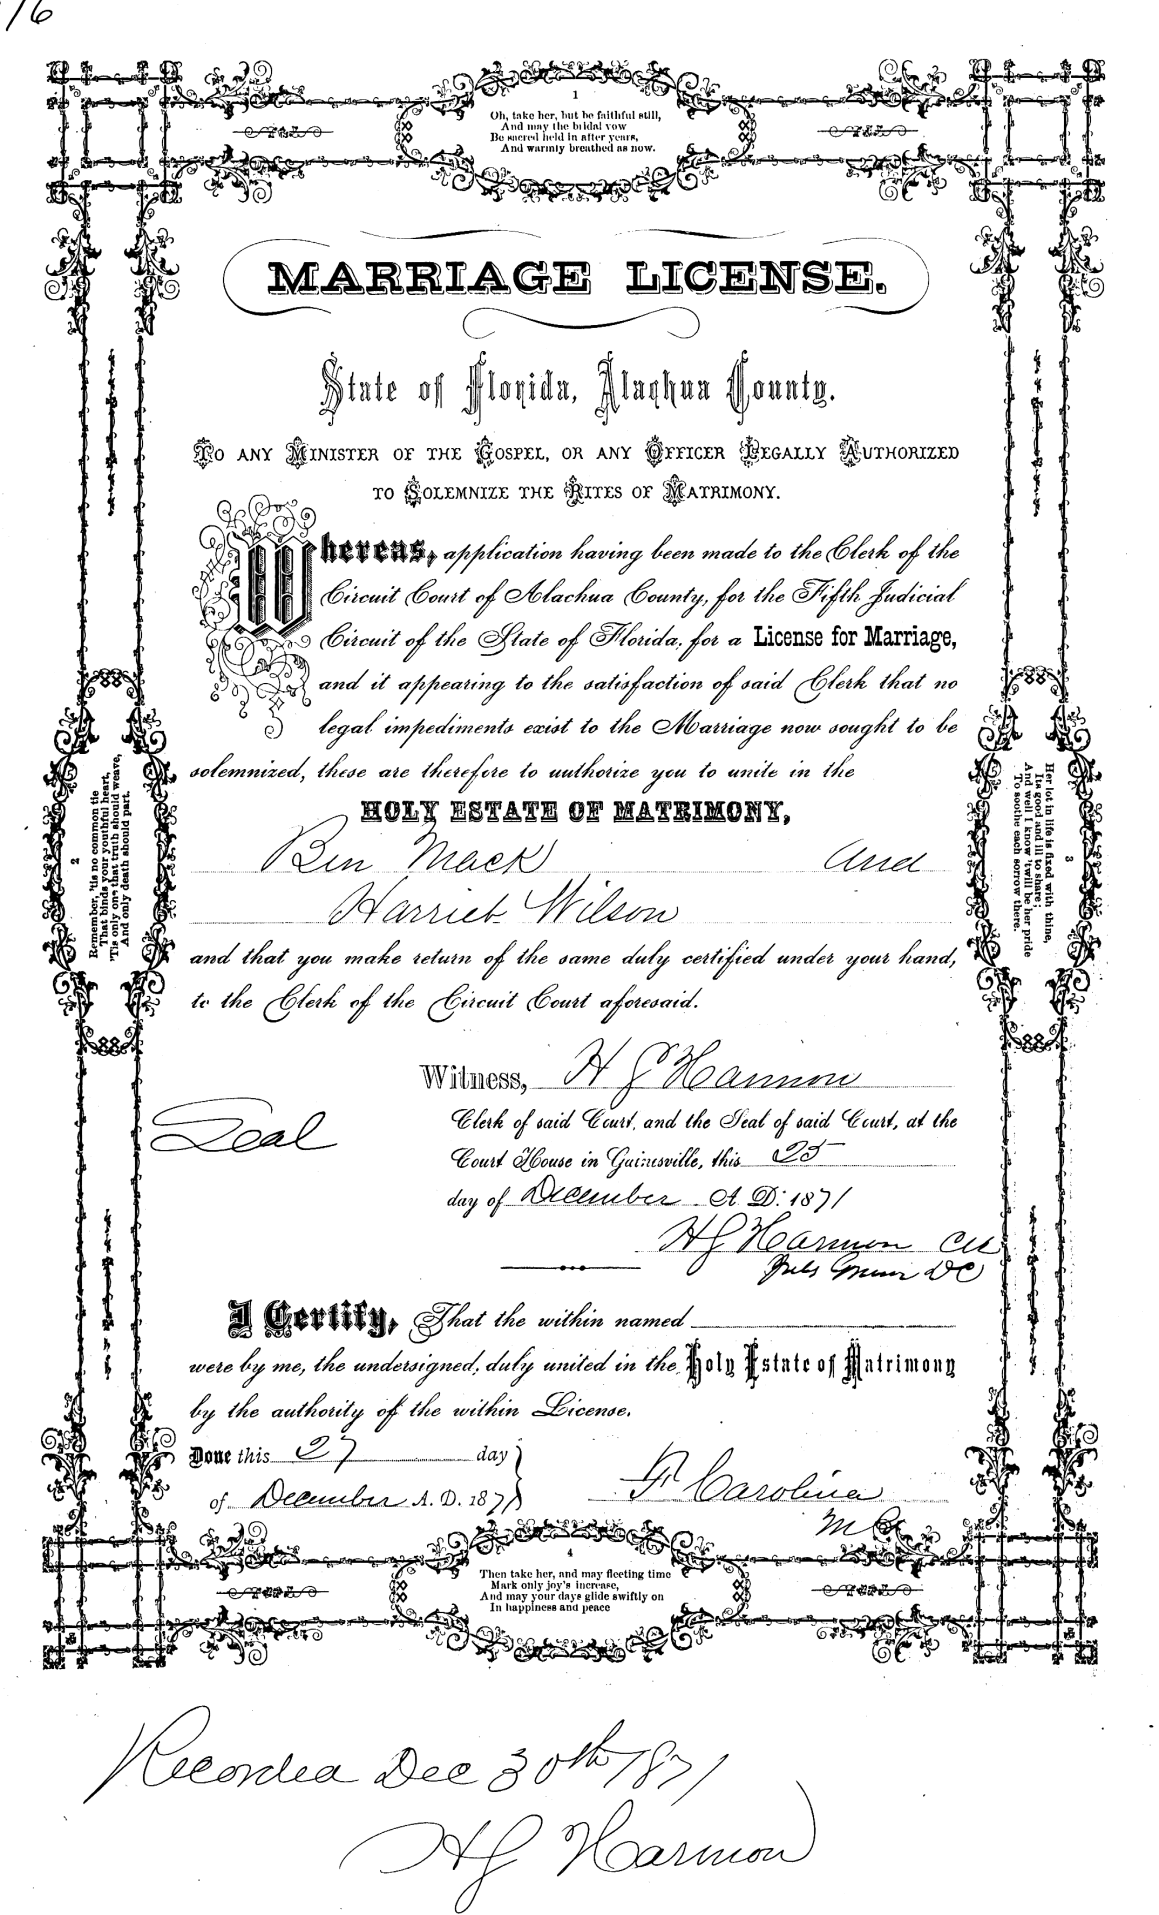 16
1
Oh, take her, but be faithful still,
And may the bridal vow
Be sacred held in after years,
And warmly breathed as now.
MARRIAGE LICENSE.
State of Florida, Alachua County.
TO ANY MINISTER OF THE GOSPEL, OR ANY OFFICER LEGALLY AUTHORIZED
TO SOLEMNIZE THE RITES OF MATRIMONY.
Whereas, application having been made to the Clerk of the
Circuit Court of Alachua County, for the Fifth Judicial
Circuit of the State of Florida, for a License for Marriage,
and it appearing to the satisfaction of said Clerk that no
legal impediments exist to the Marriage now sought to be
solemnized, these are therefore to authorize you to unite in the
HOLY ESTATE OF MATRIMONY,
Ben Mack and
Harriet Wilson
and that you make return of the same duly certified under your hand,
to the Clerk of the Circuit Court aforesaid.
2
Remember, 'tis no common tie
That binds your youthful heart,
'Tis only one that truth should weave,
And only death should part.
3
Her lot in life is fixed with thine,
Its good and ill to share;
And well I know 'twill be her pride
To soothe each sorrow there.
Witness, H J Harmon
Seal
Clerk of said Court, and the Seal of said Court, at the
Court House in Gainesville, this 25
day of December A. D. 1871
H J Harmon Clk
DC
I Certify, That the within named
were by me, the undersigned, duly united in the Holy Estate of Matrimony
by the authority of the within License.
Done this 27 day
of December A. D. 1871
F Carolina
M G
4
Then take her, and may fleeting time
Mark only joy's increase,
And may your days glide swiftly on
In happiness and peace
Recorded Dec 30th 1871
H J Harmon